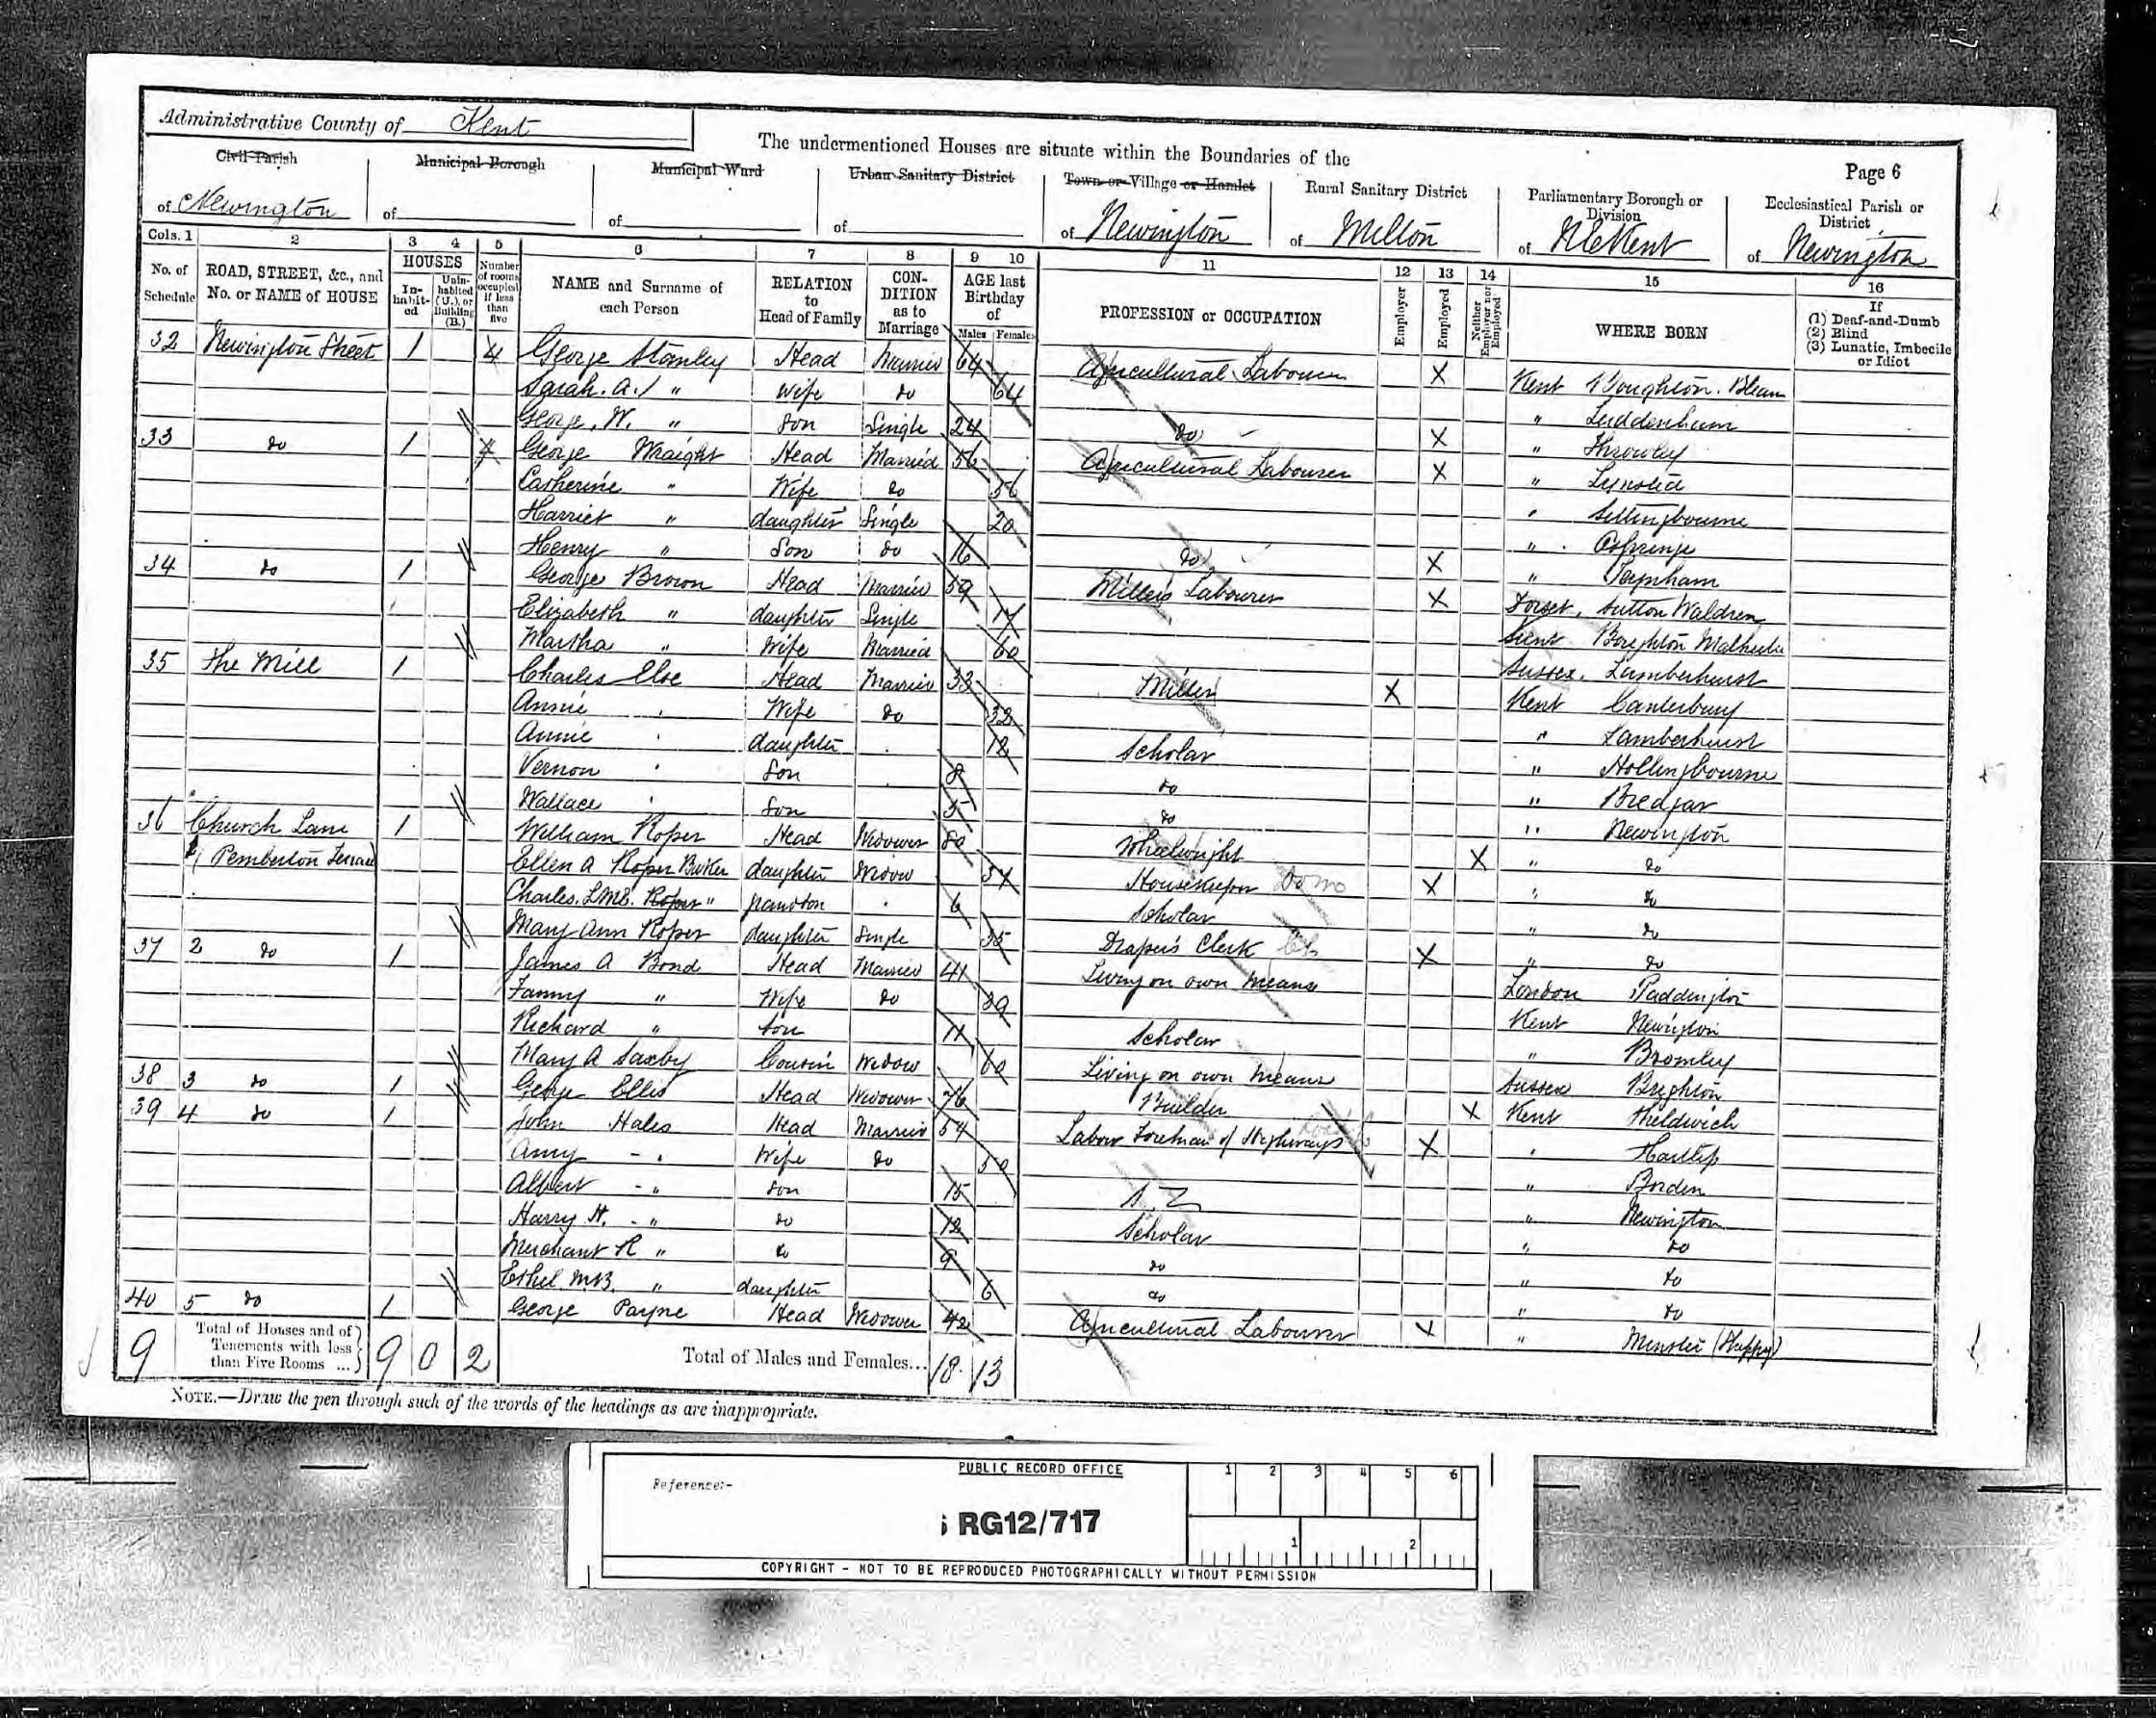 Administrative County of Kent
The undermentioned Houses are situate within the Boundaries of the
Page 6
Civil Parish of Newington
Municipal Borough of
Municipal Ward of
Urban Sanitary District of
Town or Village or Hamlet of Newington
Rural Sanitary District of Milton
Parliamentary Borough or Division of N E Kent
Ecclesiastical Parish or District of Newington
Cols. 1 2 3 4 5 6 7 8 9 10 11 12 13 14 15 16
No. of Schedule
ROAD, STREET, &c., and No. or NAME of HOUSE
HOUSES
In-habit-ed
Unin-habited (U.), or Building (B.)
Number of rooms occupied if less than five
NAME and Surname of each Person
RELATION to Head of Family
CON-DITION as to Marriage
AGE last Birthday of
Males Females
PROFESSION or OCCUPATION
Employer
Employed
Neither Employer nor Employed
WHERE BORN
If (1) Deaf-and-Dumb (2) Blind (3) Lunatic, Imbecile or Idiot
32 Newington Street 1 4 George Stanley Head Married 64 Agricultural Labourer X Kent Boughton. Blean
Sarah. A. " Wife do 64 " Luddenham
George. W. " Son Single 24 do X " Throwley
33 do 1 George Wraight Head Married 56 Agricultural Labourer X " Lynsted
Catherine " Wife do 56 " Sittingbourne
Harriet " daughter Single 20 " Ospringe
Henry " Son do 16 do X " Teynham
34 do 1 George Brown Head Married 59 Millers Labourer X Dorset, Sutton Waldren
Elizabeth " daughter Single 17 Kent Boughton Malherbe
Martha " Wife Married 60 Sussex. Lamberhurst
35 The Mill 1 Charles Head Married 33 Miller X Kent Canterbury
Annie Wife do 32 " Lamberhurst
Annie daughter 12 Scholar " Hollingbourne
Vernon Son 8 do " Bredgar
Wallace Son 5 do " Newington
36 Church Lane 1 William Roper Head Widower 80 Wheelwright X " do
1 Pemberton Terrace Ellen A Roper daughter Widow Housekeeper Domo X " do
Charles. Roper " grandson 6 Scholar " do
Mary Ann Roper daughter Single 35 Draper's Clerk X " do
37 2 do 1 James A Bond Head Married 41 Living on own means London Paddington
Fanny " Wife do 39 Kent Newington
Richard " Son 11 Scholar " Bromley
Mary A Saxby Cousin Widow 60 Living on own means Sussex Brighton
38 3 do 1 George Ellis Head Widower 76 Builder X Kent Sheldwich
39 4 do 1 John Hales Head Married 54 Labour Foreman of Highways X " Hartlip
Amy " Wife do 50 " Borden
Albert " Son 15 " Newington
Harry H. " do 12 Scholar " do
Merchant R " do 9 do " do
Ethel " daughter 6 do " do
40 5 do 1 George Payne Head Widower 42 Agricultural Labourer X " Minster (Sheppy)
9 Total of Houses and of Tenements with less than Five Rooms ... 9 0 2 Total of Males and Females... 18 13
NOTE.—Draw the pen through such of the words of the headings as are inappropriate.
PUBLIC RECORD OFFICE
1 2 3 4 5 6
Reference:-
RG12/717
1 2
COPYRIGHT - NOT TO BE REPRODUCED PHOTOGRAPHICALLY WITHOUT PERMISSION